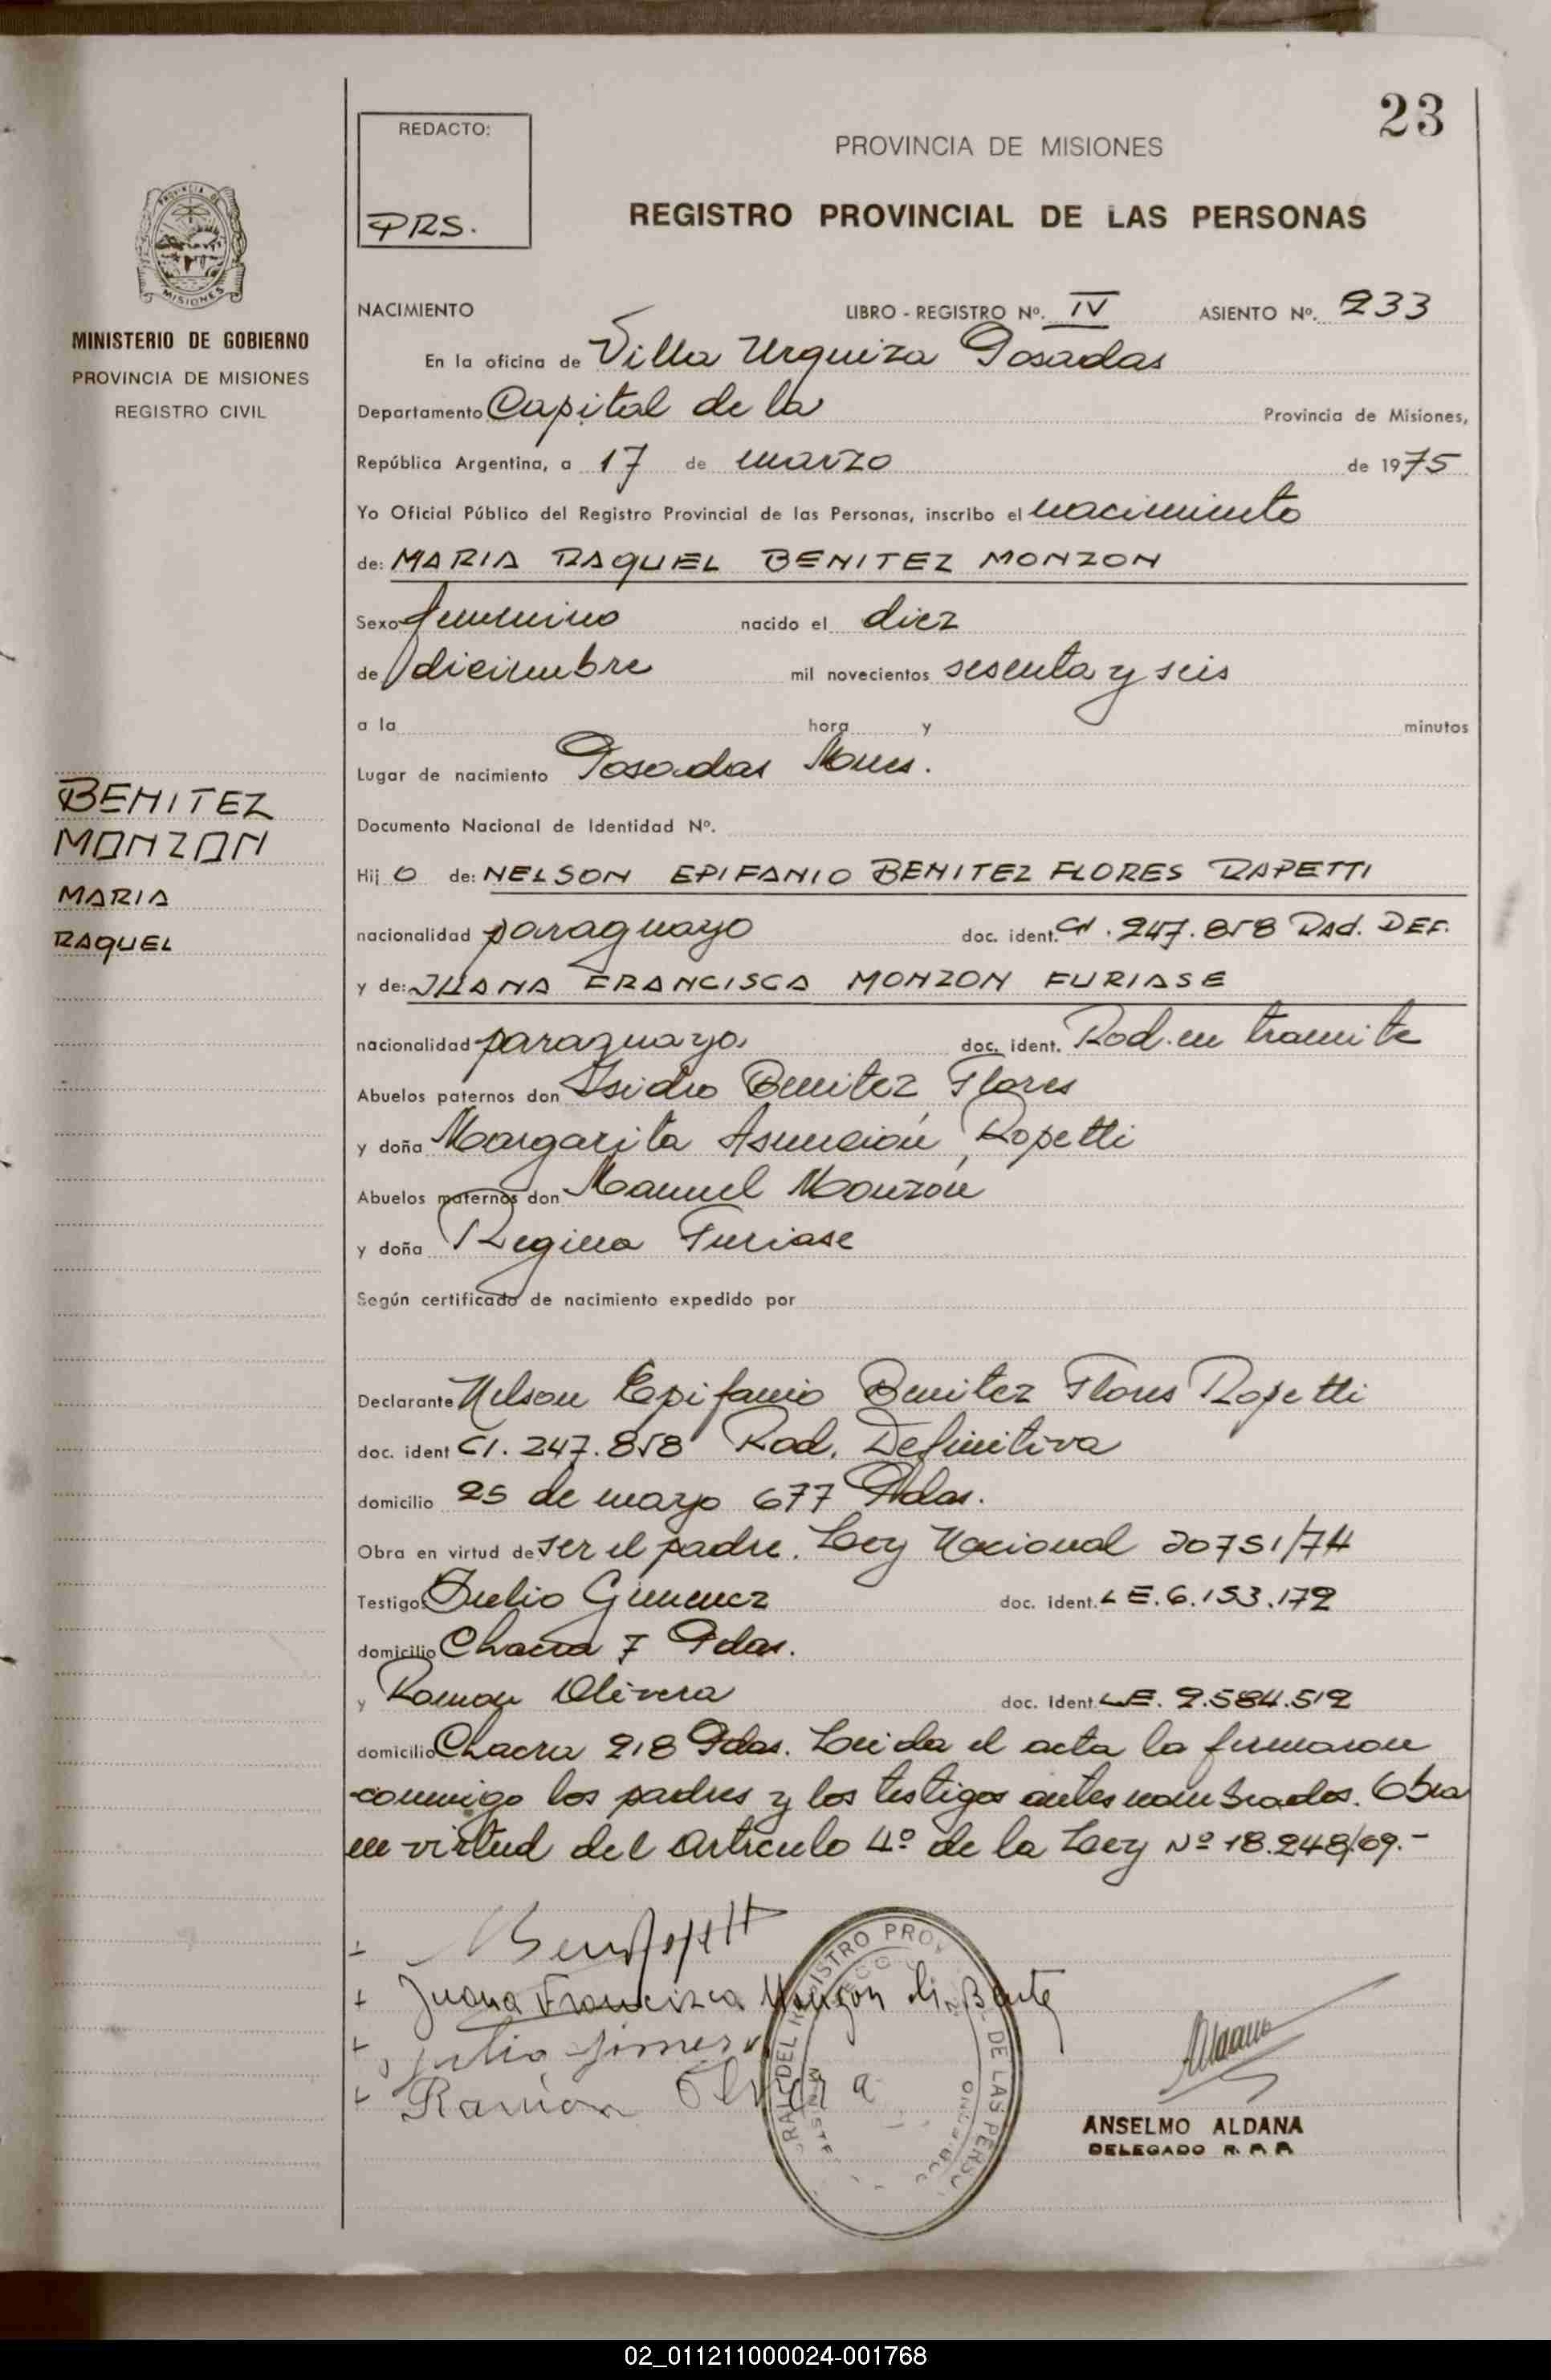 23
REDACTO:
PRS.
PROVINCIA DE MISIONES
REGISTRO PROVINCIAL DE LAS PERSONAS
PROVINCIA DE
MISIONES
MINISTERIO DE GOBIERNO
PROVINCIA DE MISIONES
REGISTRO CIVIL
NACIMIENTO LIBRO - REGISTRO Nº. IV ASIENTO Nº. 233
En la oficina de Villa Urquiza Posadas
Departamento Capital de la Provincia de Misiones,
República Argentina, a 17 de marzo de 1975
Yo Oficial Público del Registro Provincial de las Personas, inscribo el nacimiento
de: MARIA RAQUEL BENITEZ MONZON
Sexo femenino nacido el diez
de diciembre mil novecientos sesenta y seis
a la hora y minutos
Lugar de nacimiento Posadas Mnes.
Documento Nacional de Identidad Nº.
BENITEZ
MONZON
MARIA
RAQUEL
Hij o de: NELSON EPIFANIO BENITEZ FLORES RAPETTI
nacionalidad paraguayo doc. ident. CI. 247.858 Rad. DEF.
y de: JUANA FRANCISCA MONZON FURIASE
nacionalidad paraguaya doc. ident. Rad. en tramite
Abuelos paternos don Isidro Benitez Flores
y doña Margarita Asunción Rapetti
Abuelos maternos don Manuel Monzón
y doña Regina Furiase
Según certificado de nacimiento expedido por
Declarante Nelson Epifanio Benitez Flores Rapetti
doc. ident CI. 247.858 Rad. Definitiva
domicilio 25 de mayo 677 Pdas.
Obra en virtud de ser el padre. Ley Nacional 20751/74
Testigos Julio Gimenez doc. ident. LE. 6.153.172
domicilio Chacra 7 Pdas.
y Ramon Olivera doc. Ident. LE. 2.584.512
domicilio Chacra 218 Pdas. Leida el acta la firmaron
conmigo los padres y los testigos antes nombrados. Obra
en virtud del Artículo 4º de la Ley Nº 18.248/69.-
Juana Francisca Monzon de Bente
Julio Jimenez
Ramon Olivera
REGISTRO PROV DE LAS PERSO
ANSELMO ALDANA
DELEGADO R. P. P.
02_011211000024-001768